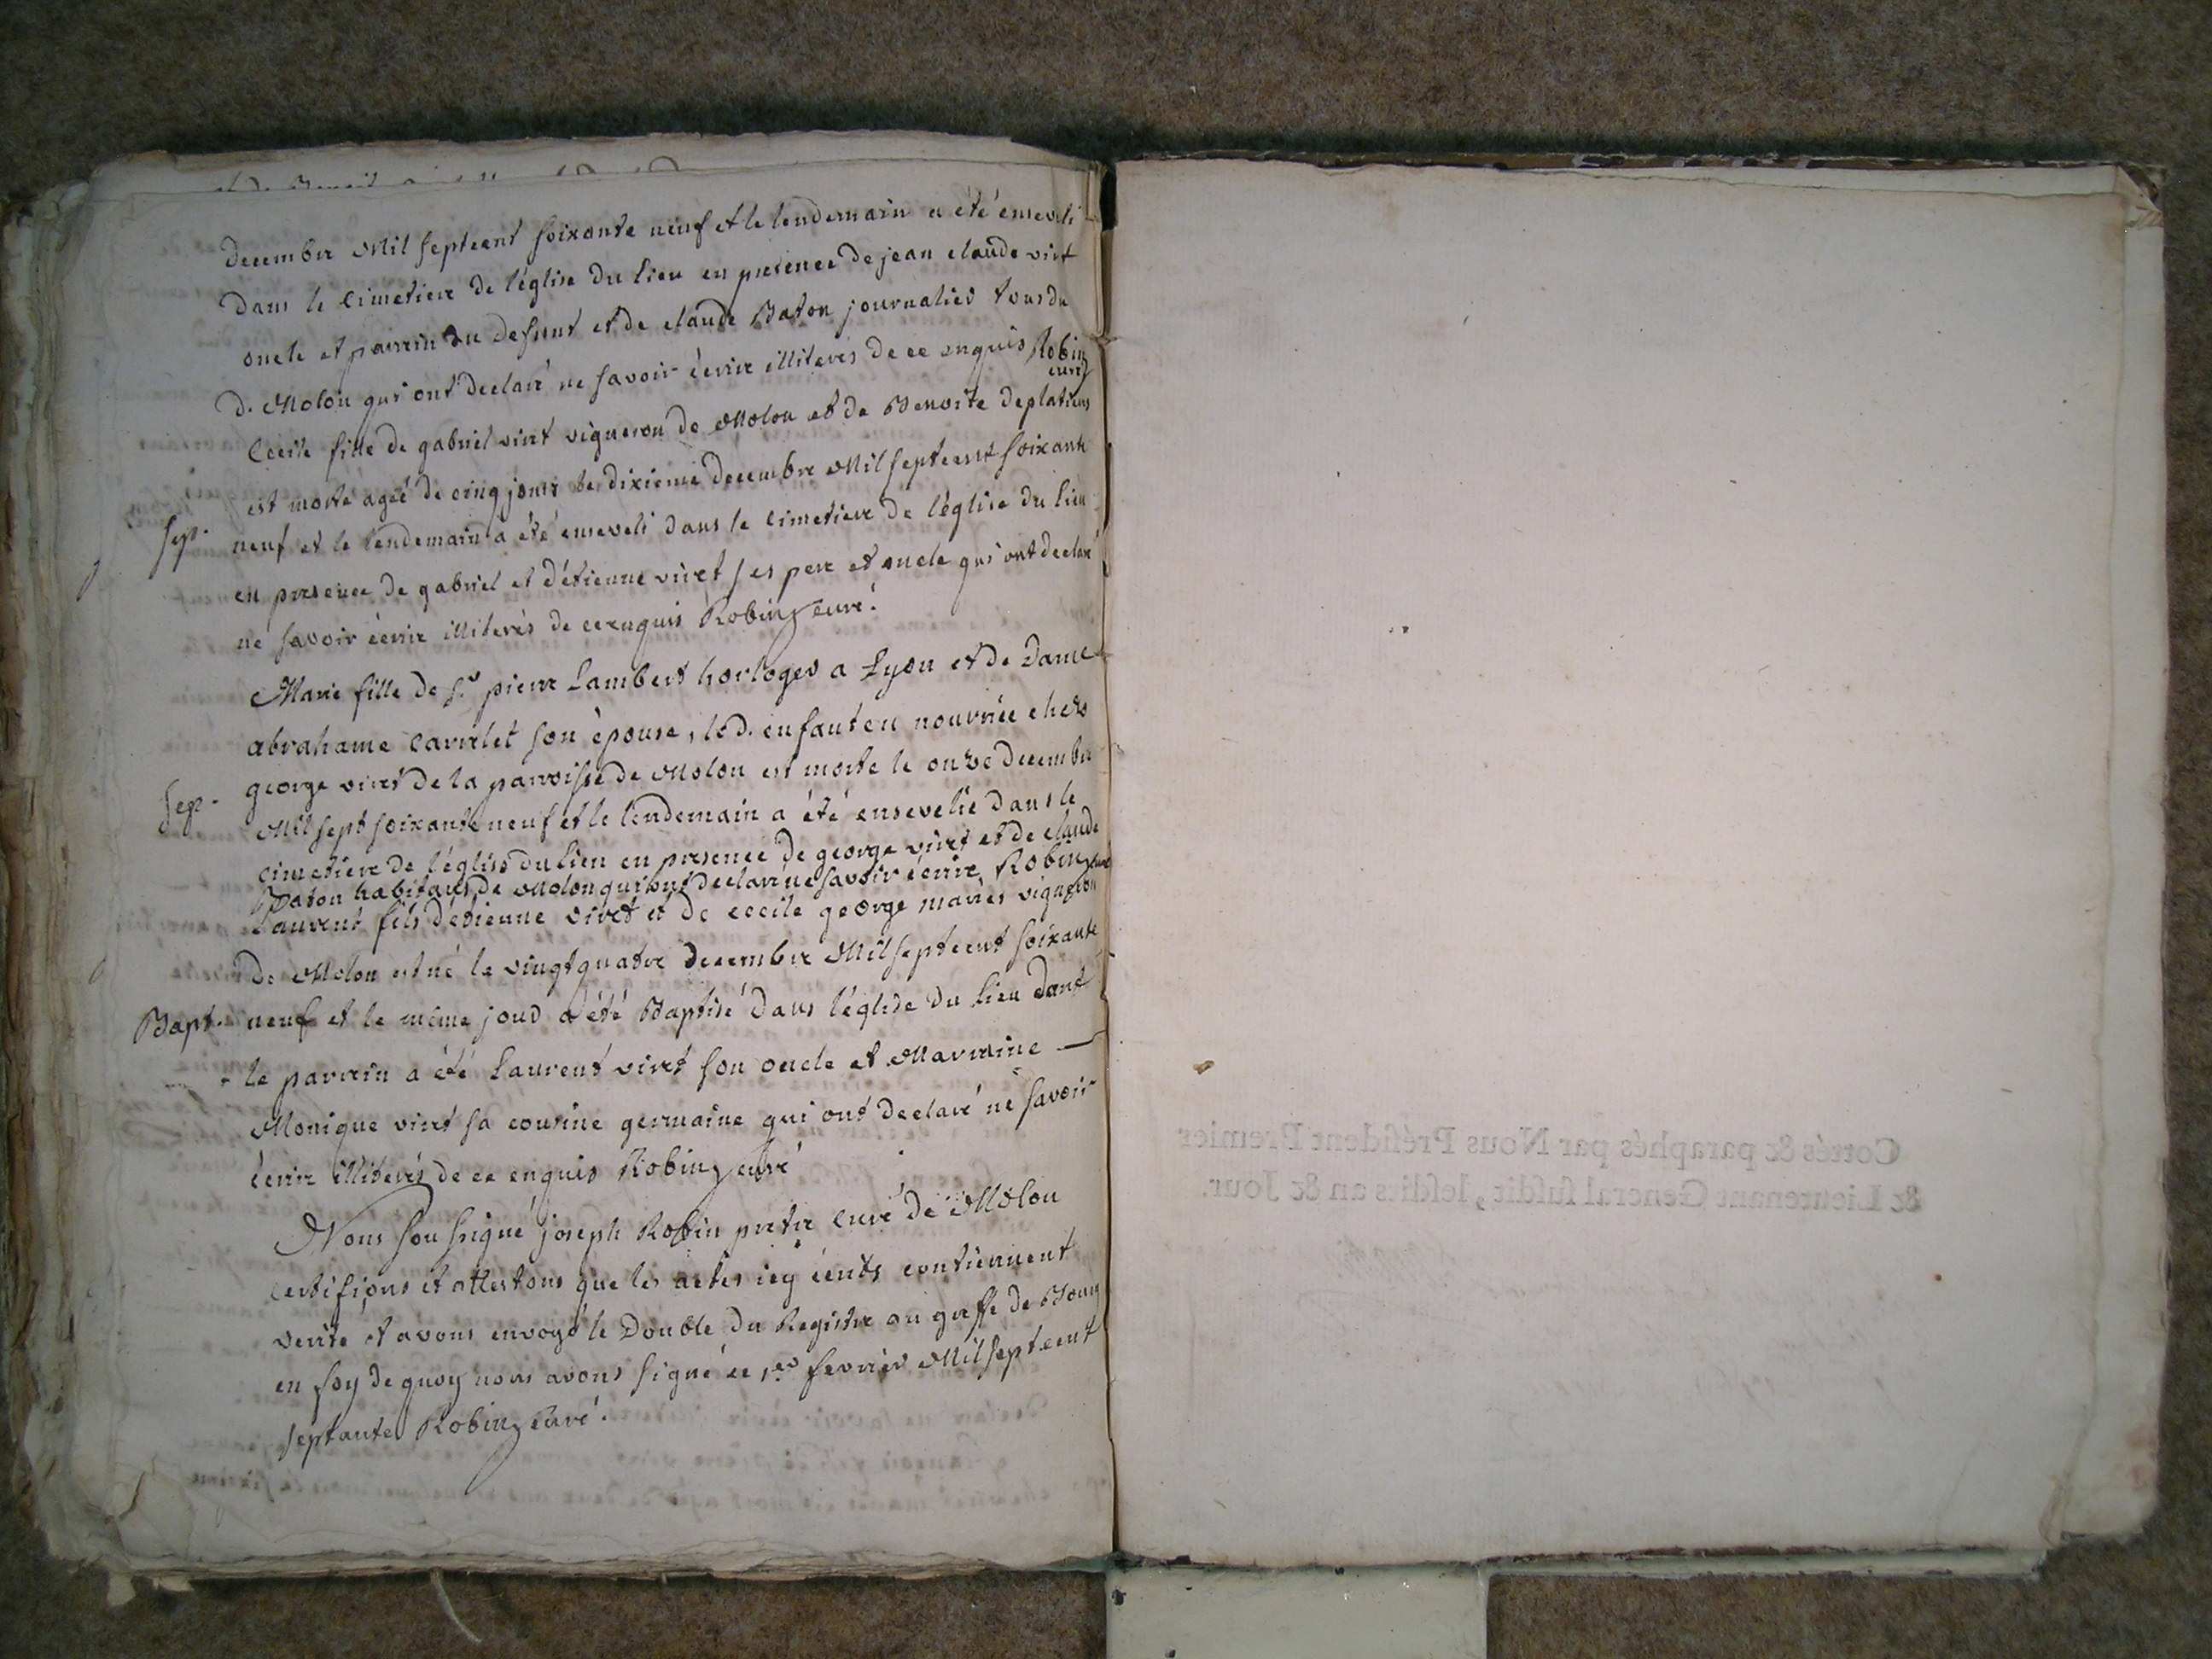 decembre Mil septcent soixante neuf et le lendemain a été enseveli
dans le Cimetiere de l'église du lieu en presence de jean claude viret
oncle et parrein du defunt et de claude Baton journalier tous du
d. Molon qui ont declaré ne savoir écrire illiterés de ce enquis Robin
curé
Cecile fille de gabriel viret vigneron de Molon et de Benoite deplatiens
est morte ageé de cinq jours le dixieme decembre Mil septcent soixante
sep. neuf et le lendemain a été enseveli dans le Cimetiere de l'église du lieu
en presence de gabriel et d'étienne viret ses pere et oncle qui ont declaré
ne savoir écrire illiterés de ce enquis Robin curé.
Marie fille de Sr pierre Lambert horloger a Lyon et de Dame
abrahame Carrelet son épouse, led. enfant en nourrice chés
george viret de la parroisse de Molon est morte le onze decembre
sep. Mil sept soixante neuf et le lendemain a été ensevelie dans le
cimetiere de l'église du lieu en presence de george viret et de claude
Baton habitans de Molon qui ont declaré ne savoir écrire Robin curé
Laurent fils d'étienne viret et de cecile george mariés vigneron
de Molon est né le vingtquatre decembre Mil septcent soixante
Bapt. neuf et le même jour a été Baptisé dans l'église du lieu dont
le parrein a été Laurent viret son oncle et Marreine
Monique viret sa cousine germaine qui ont declaré ne savoir
écrire illiterés de ce enquis Robin curé
Nous soussigné joseph Robin pretre curé de Molon
certifions et attestons que les actes icy écrits contiennent
verité et avons envoyé le Double du Registre au greffe de Bourg
en foy de quoy nous avons signé ce 1er fevrier Mil septcent
septante Robin curé.
Cottés & paraphés par Nous Président Premier
& Lieutenant General susdit, lesdits an & Jour.